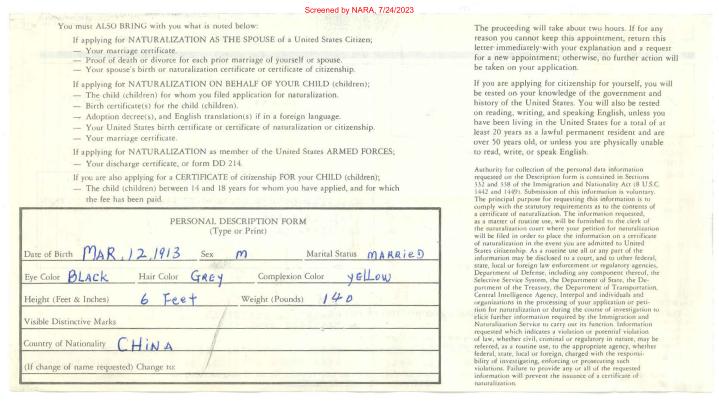 Screened by NARA, 7/24/2023
You must ALSO BRING with you what is noted below:
If applying for NATURALIZATION AS THE SPOUSE of a United States Citizen;
— Your marriage certificate.
— Proof of death or divorce for each prior marriage of yourself or spouse.
— Your spouse's birth or naturalization certificate or certificate of citizenship.
If applying for NATURALIZATION ON BEHALF OF YOUR CHILD (children);
— The child (children) for whom you filed application for naturalization.
— Birth certificate(s) for the child (children).
— Adoption decree(s), and English translation(s) if in a foreign language.
— Your United States birth certificate or certificate of naturalization or citizenship.
— Your marriage certificate.
If applying for NATURALIZATION as member of the United States ARMED FORCES;
— Your discharge certificate, or form DD 214.
If you are also applying for a CERTIFICATE of citizenship FOR your CHILD (children);
— The child (children) between 14 and 18 years for whom you have applied, and for which
the fee has been paid.
PERSONAL DESCRIPTION FORM
(Type or Print)
Date of Birth MAR, 12, 1913 Sex M Marital Status MARRIED
Eye Color BLACK Hair Color GREY Complexion Color YELLOW
Height (Feet & Inches) 6 Feet Weight (Pounds) 140
Visible Distinctive Marks
Country of Nationality CHINA
(If change of name requested) Change to:
The proceeding will take about two hours. If for any
reason you cannot keep this appointment, return this
letter immediately with your explanation and a request
for a new appointment; otherwise, no further action will
be taken on your application.
If you are applying for citizenship for yourself, you will
be tested on your knowledge of the government and
history of the United States. You will also be tested
on reading, writing, and speaking English, unless you
have been living in the United States for a total of at
least 20 years as a lawful permanent resident and are
over 50 years old, or unless you are physically unable
to read, write, or speak English.
Authority for collection of the personal data information
requested on the Description form is contained in Sections
332 and 338 of the Immigration and Nationality Act (8 U.S.C.
1442 and 1449). Submission of this information is voluntary.
The principal purpose for requesting this information is to
comply with the statutory requirements as to the contents of
a certificate of naturalization. The information requested,
as a matter of routine use, will be furnished to the clerk of
the naturalization court where your petition for naturalization
will be filed in order to place the information on a certificate
of naturalization in the event you are admitted to United
States citizenship. As a routine use all or any part of the
information may be disclosed to a court, and to other federal,
state, local or foreign law enforcement or regulatory agencies,
Department of Defense, including any component thereof, the
Selective Service System, the Department of State, the De-
partment of the Treasury, the Department of Transportation,
Central Intelligence Agency, Interpol and individuals and
organizations in the processing of your application or peti-
tion for naturalization or during the course of investigation to
elicit further information required by the Immigration and
Naturalization Service to carry out its function. Information
requested which indicates a violation or potential violation
of law, whether civil, criminal or regulatory in nature, may be
referred, as a routine use, to the appropriate agency, whether
federal, state, local or foreign, charged with the responsi-
bility of investigating, enforcing or prosecuting such
violations. Failure to provide any or all of the requested
information will prevent the issuance of a certificate of
naturalization.